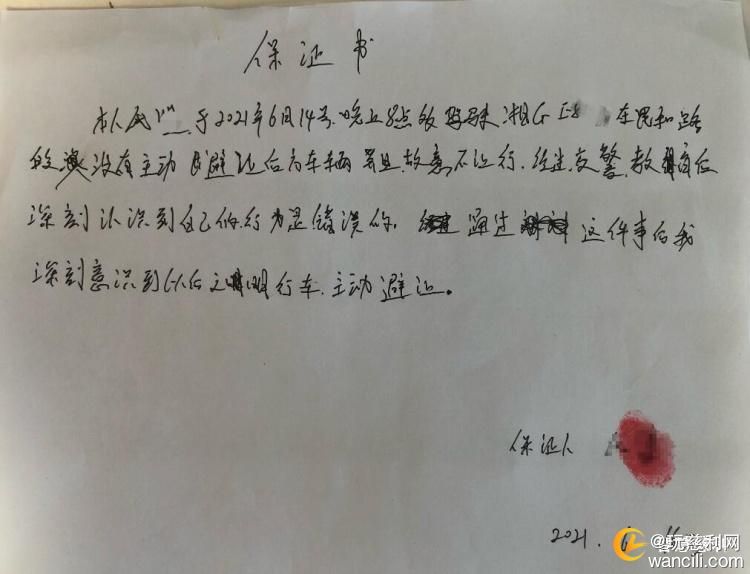 保证书
本人 于2021年6月14号.晚上8点 驾驶湘G E8 在民和路
没有主动避让后方车辆 并且故意不让行.经过交警.教育后
深刻认识到自己的行为是错误的。 通过 这件事后我
深刻意识到以后文明行车.主动避让。
保证人
2021.
@玩慈利网
wancili.com